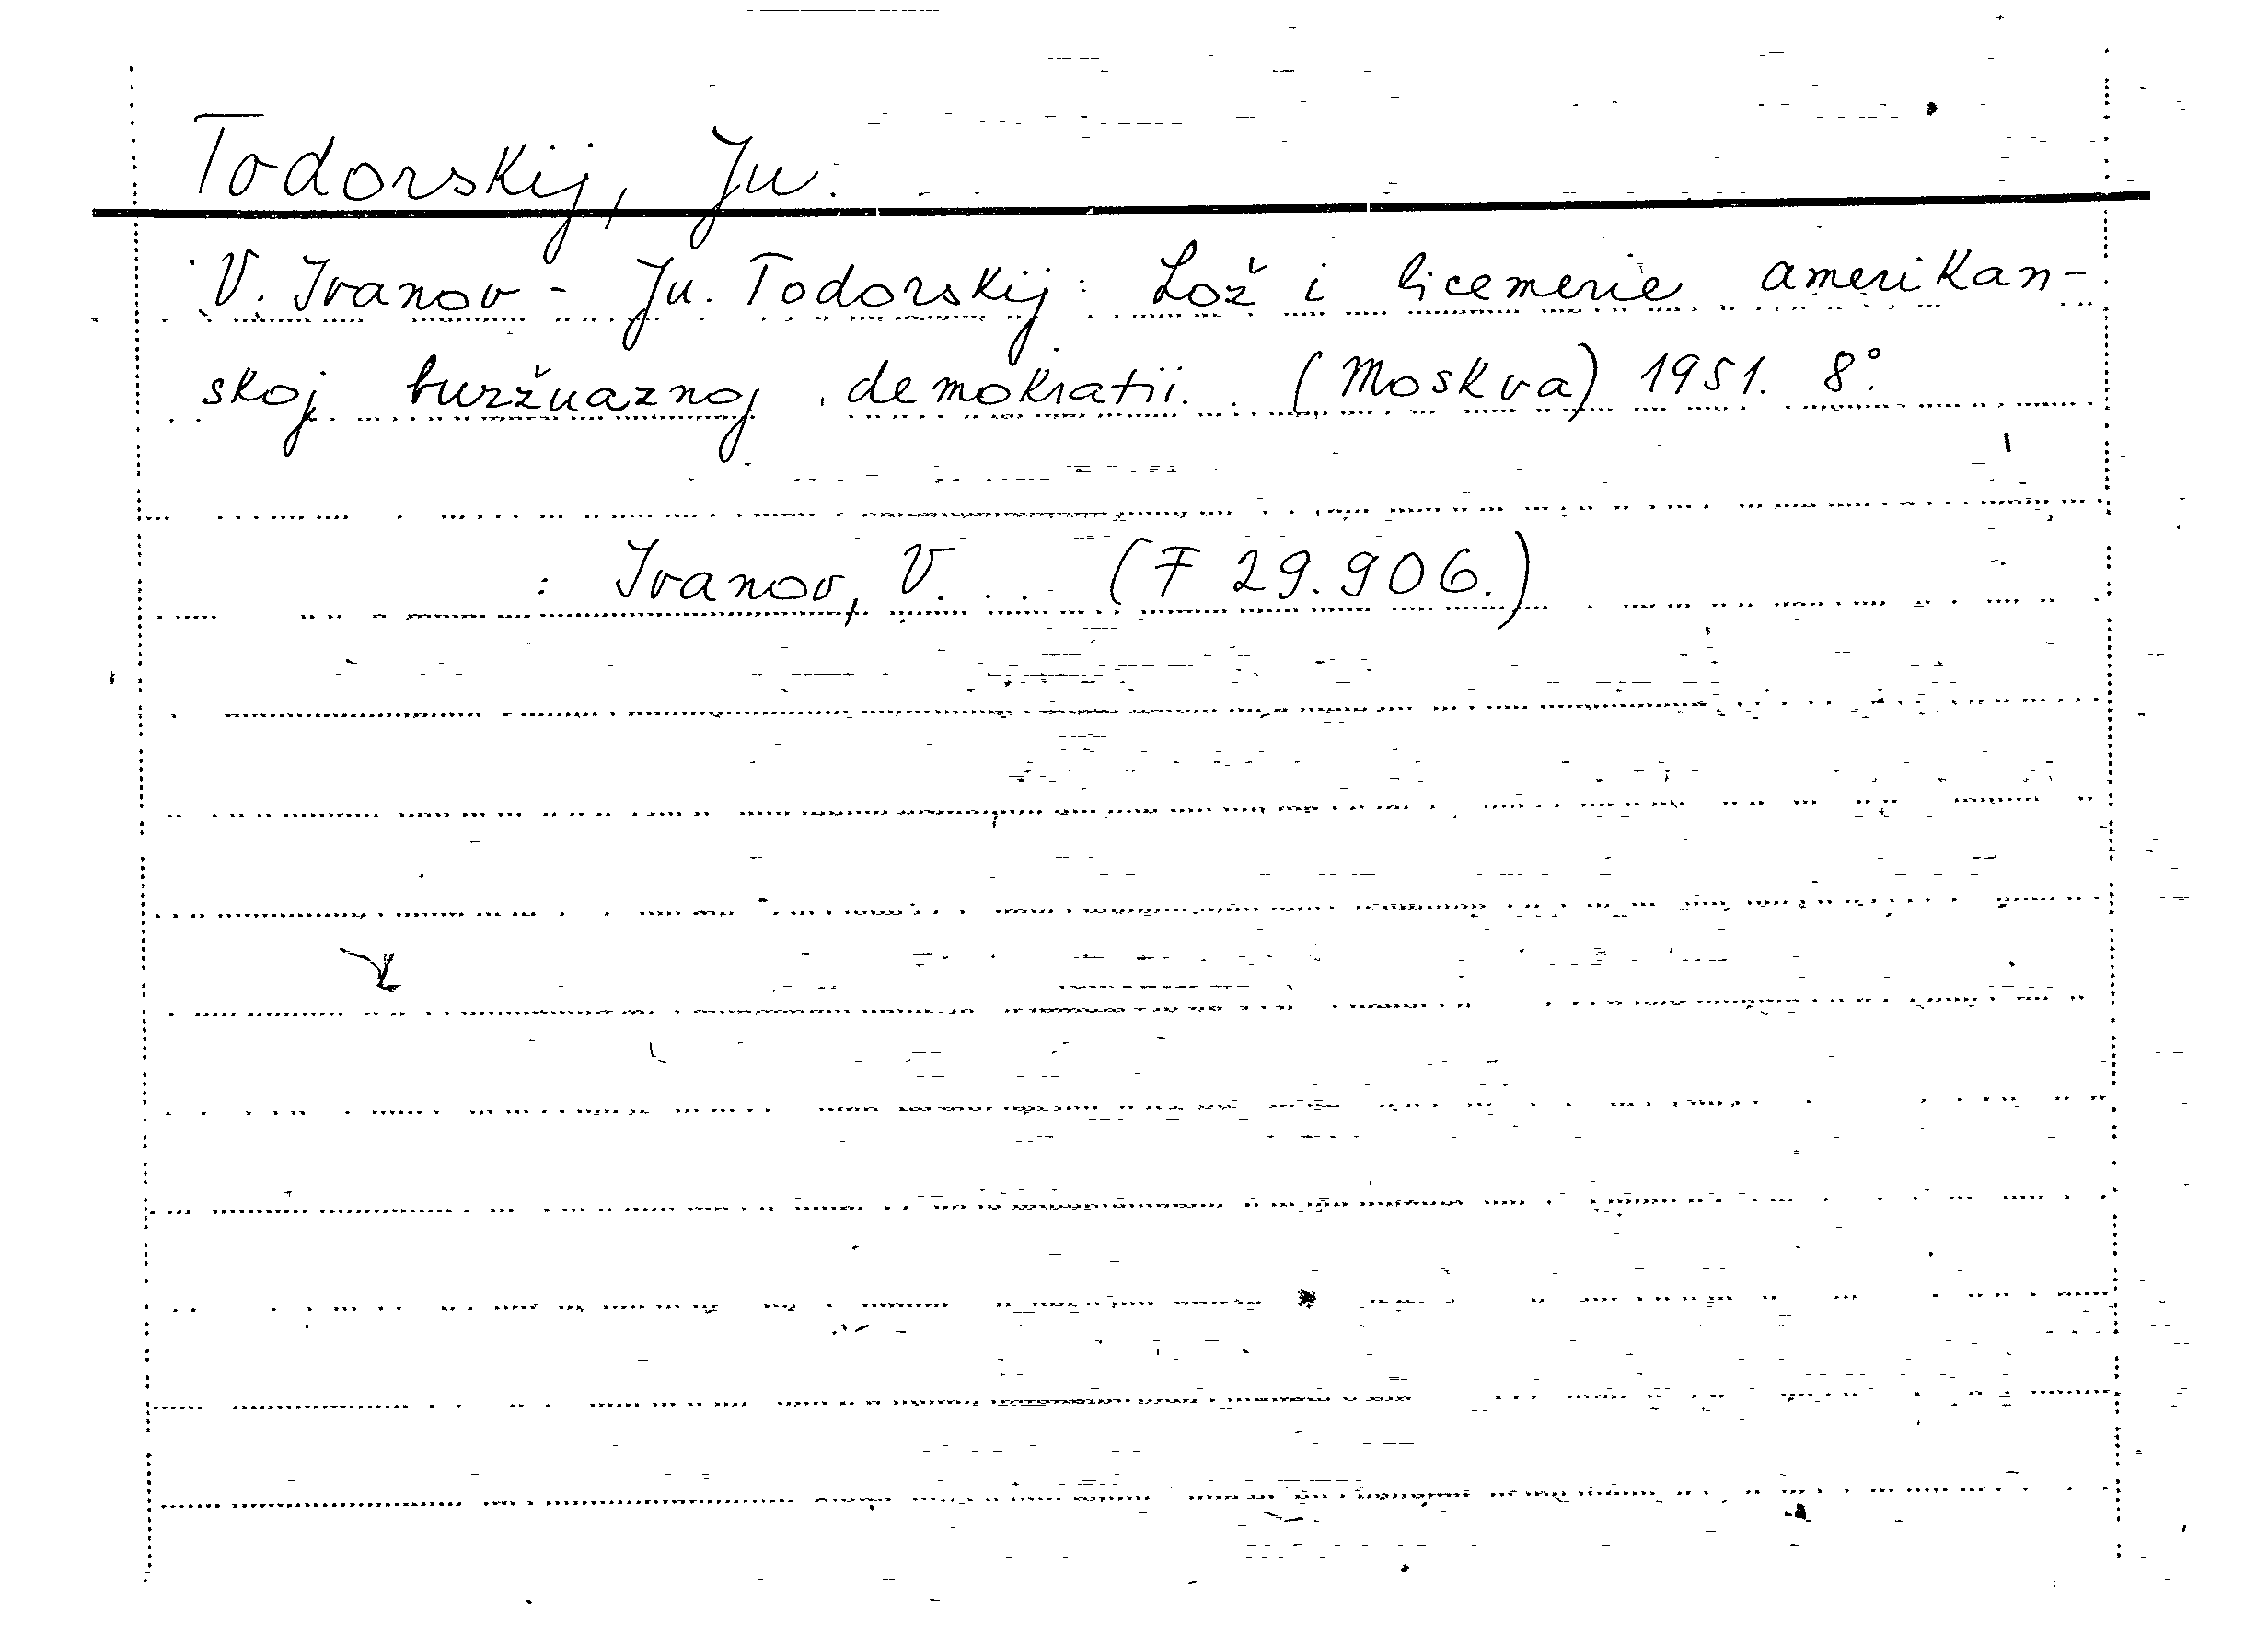 Todorskij, Ju.
V. Ivanov - Ju. Todorskij: Lož i licemerie amerikan-
skoj buržuaznoj demokratii. (Moskva) 1951. 8°.
: Ivanov, V. (F 29.906.)